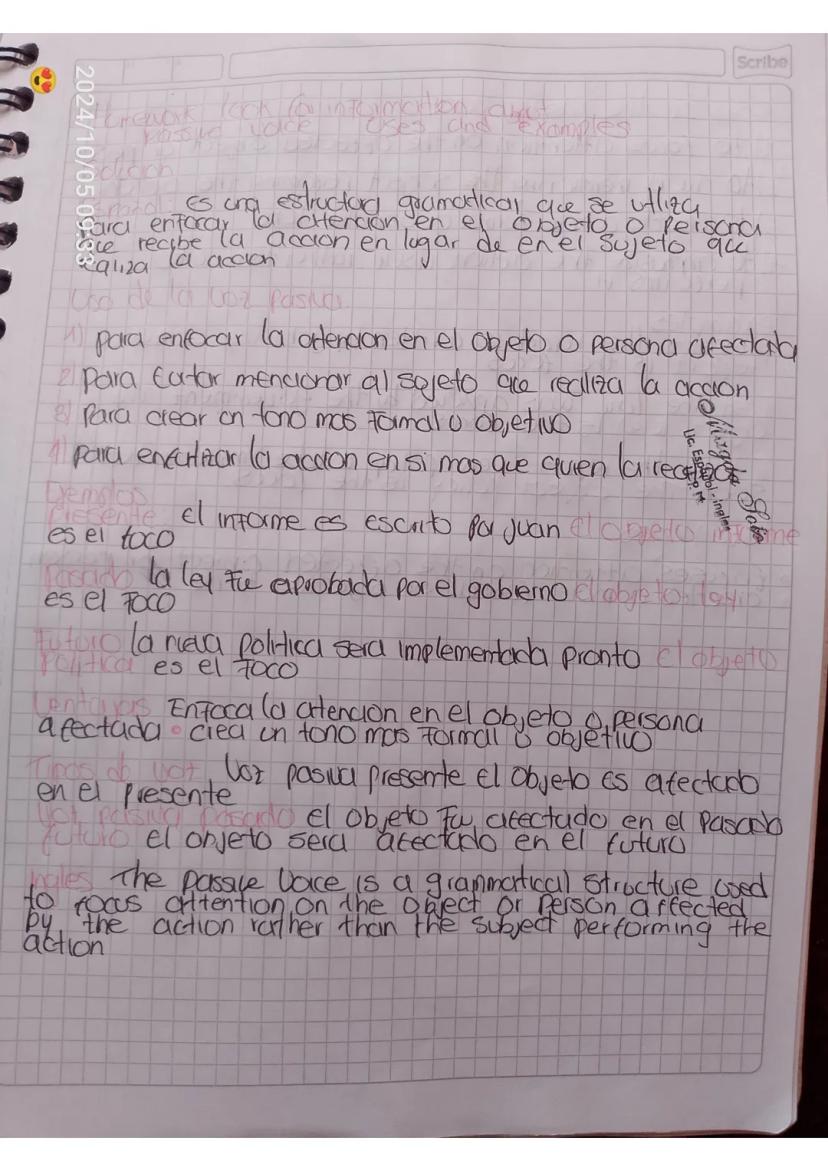 Scribe
2024/10/05 09:33
Homework look for information about
passive voice uses and examples
es una estructura gramatical que se utiliza
para enfocar la atencion en el objeto o persona
que recibe la accion en lugar de en el sujeto que
realiza la accion
Uso de la voz pasiva
1) para enfocar la atencion en el objeto o persona afectada
2) para evitar mencionar al sujeto que realiza la accion
3) para crear un tono mas formal u objetivo
4) para enfatizar la accion en si mas que quien la
Lic. Español - ingles
Ejemplos
Presente el informe es escrito por juan el objeto informe
es el foco
Pasado la ley fue aprobada por el gobierno el objeto ley
es el foco
Futuro la nueva politica sera implementada pronto el objeto
politica es el foco
Ventajas Enfoca la atencion en el objeto o persona
afectada • crea un tono mas formal u objetivo
Tipos de voz Voz pasiva presente El objeto es afectado
en el presente
Voz pasiva pasado el objeto fue afectado en el pasado
futuro el objeto sera afectado en el futuro
Ingles The passive voice is a grammatical structure used
to focus attention on the object or person affected
by the action rather than the subject performing the
action